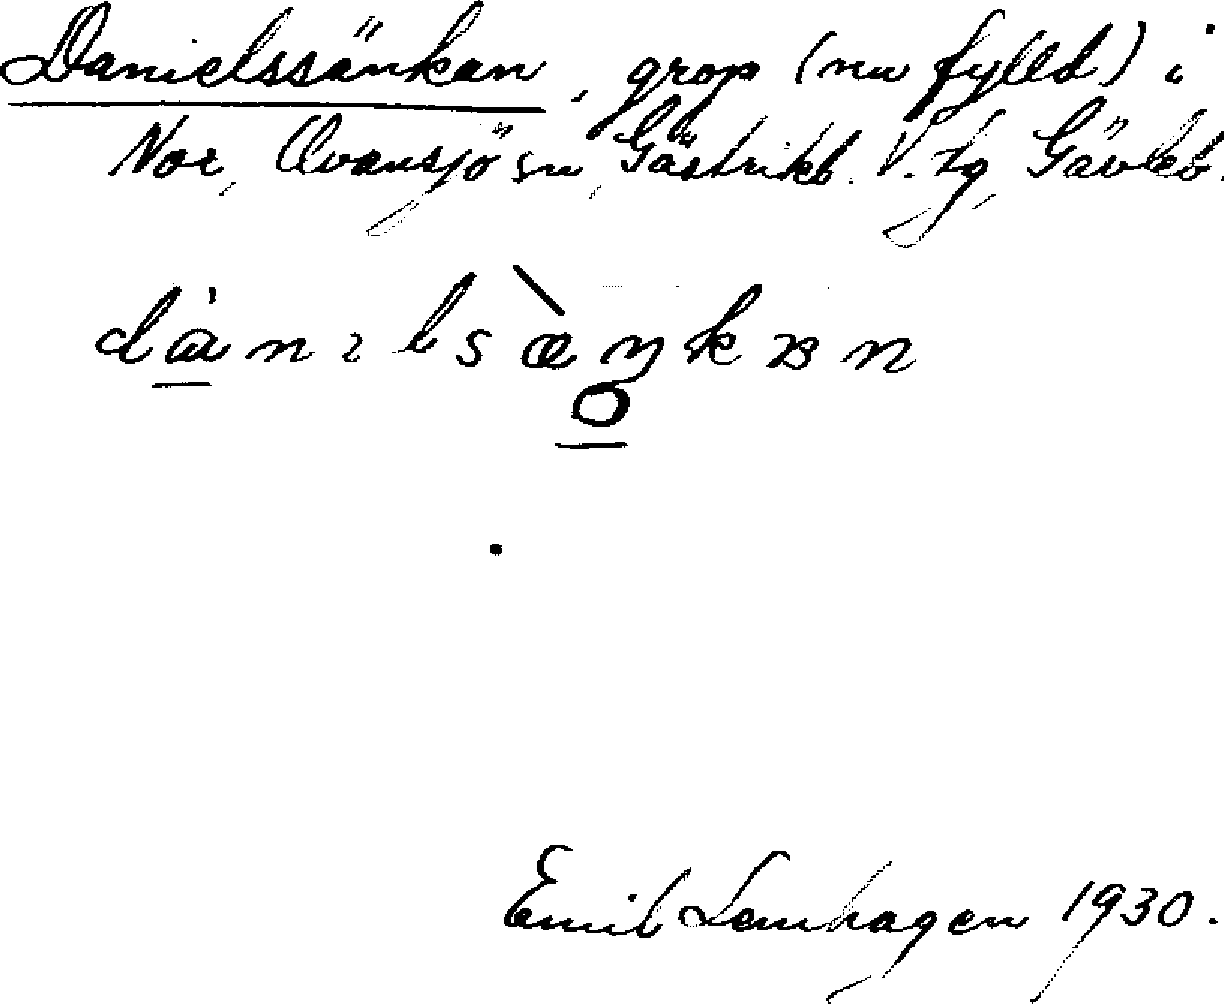 Danielssänkan, grop (nu fylld) i
Nor, Ovansjö sn, Gästrikl. V. tg, Gävleb.
Emil Lemhagen 1930.